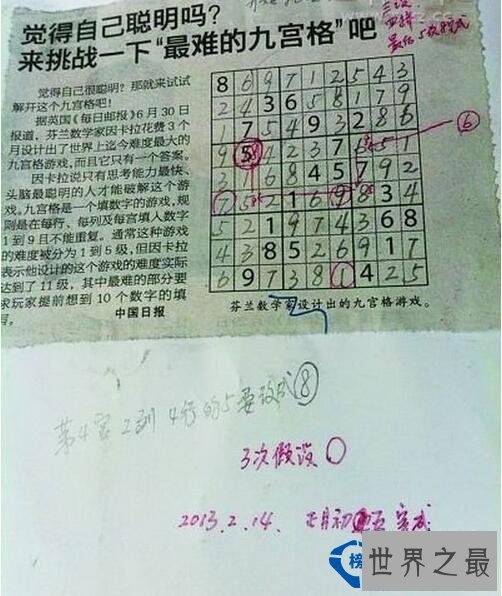 觉得自己聪明吗?
来挑战一下“最难的九宫格”吧
觉得自己很聪明?那就来试试
解开这个九宫格吧!
据英国《每日邮报》6月30日
报道,芬兰数学家因卡拉花费3个
月设计出了世界上迄今难度最大的
九宫格游戏,而且它只有一个答案。
因卡拉说只有思考能力最快、
头脑最聪明的人才能破解这个游
戏。九宫格是一个填数字的游戏,规
则是在每行、每列及每宫填人数字
1到9且不能重复。通常这种游戏
的难度被分为1到5级,但因卡拉
表示他设计的这个游戏的难度实际
达到了11级,其中最难的部分要
求玩家提前想到10个数字的填
写。
中国日报
8 6 9 7 1 2 5 4 3
2 4 3 6 5 8 1 7 9
1 7 5 4 9 3 2 8 6
9 4 2 3 7 5 1
3 1 6 8 4 5 7 9 2
7 5 2 1 6 9 8 3 4
5 2 1 9 7 4 3 6 8
4 3 8 5 2 6 9 1 7
6 9 7 3 8 1 4 2 5
⑥
芬兰数学家设计出的九宫格游戏。
第4宫2列4行的5要改成⑧
3次假设
2013.2.14. 正月初五完成
榜
世界之最